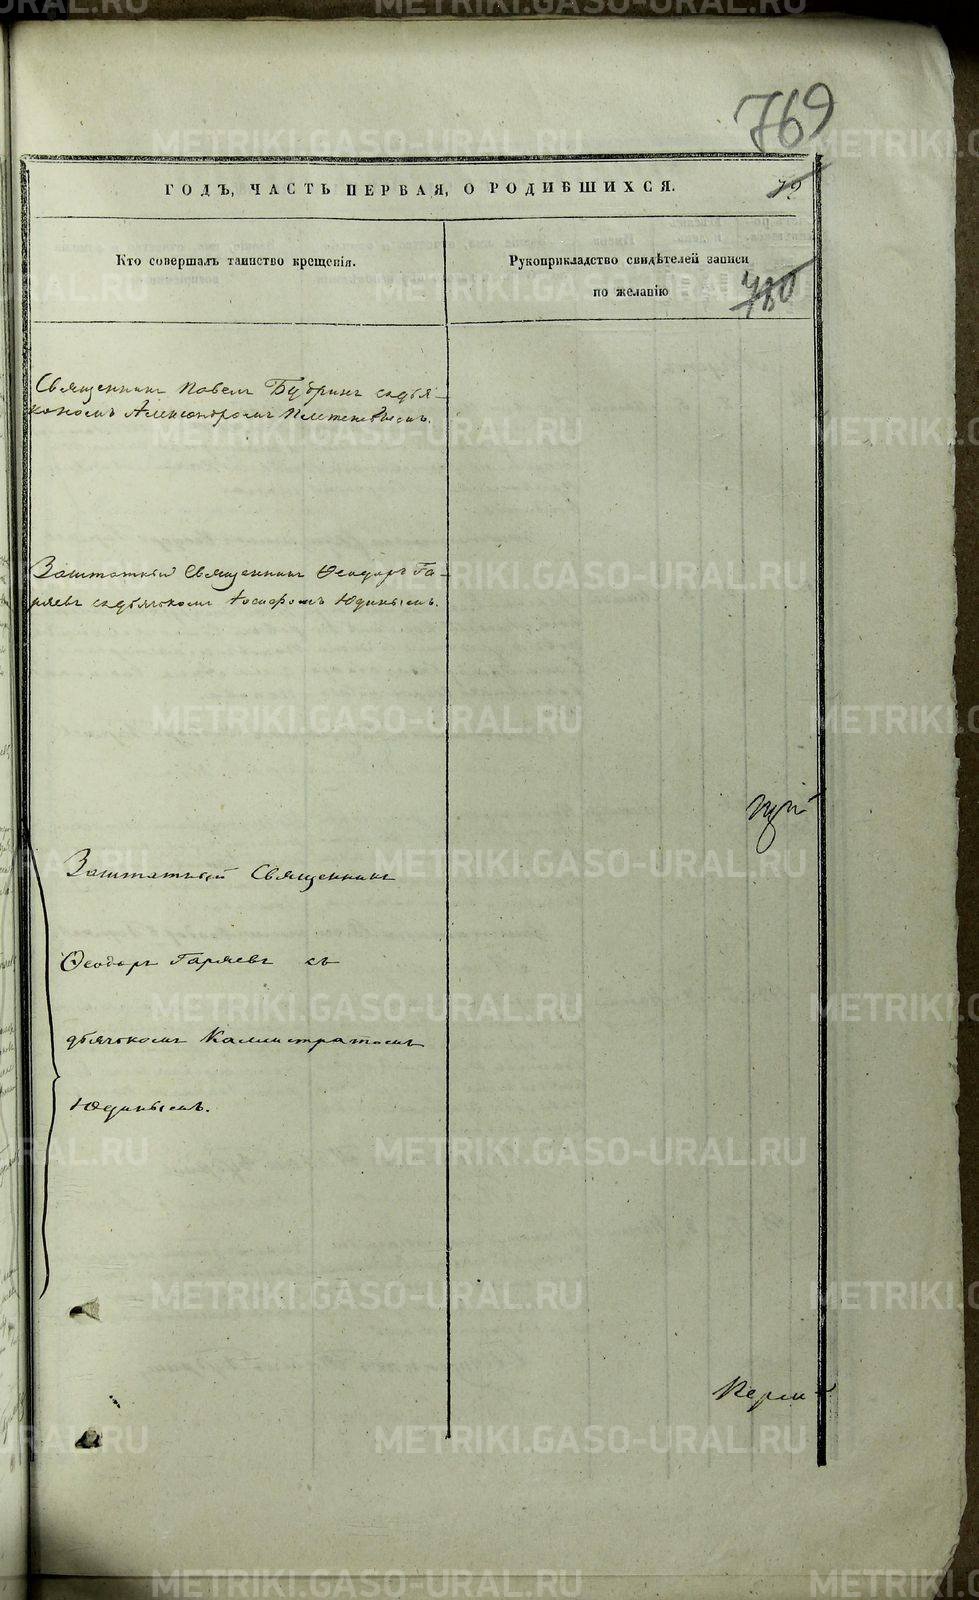 METRIKI.GASO-URAL.RU
769
ГОДЪ, ЧАСТЬ ПЕРВАЯ, О РОДИВШИХСЯ.
Кто совершалъ таинство крещенія.
Рукоприкладство свидѣтелей записи
по желанію
780
Священникъ Павелъ Бубринъ съ дья-
кономъ Александромъ Плетеневымъ.
Заштатный Священникъ Ѳеодоръ Га-
ряевъ съ дьячкомъ Іосифомъ Юдинымъ.
Заштатный Священникъ
Ѳеодоръ Гаряевъ съ
дьячкомъ Каллистратомъ
Юдинымъ.